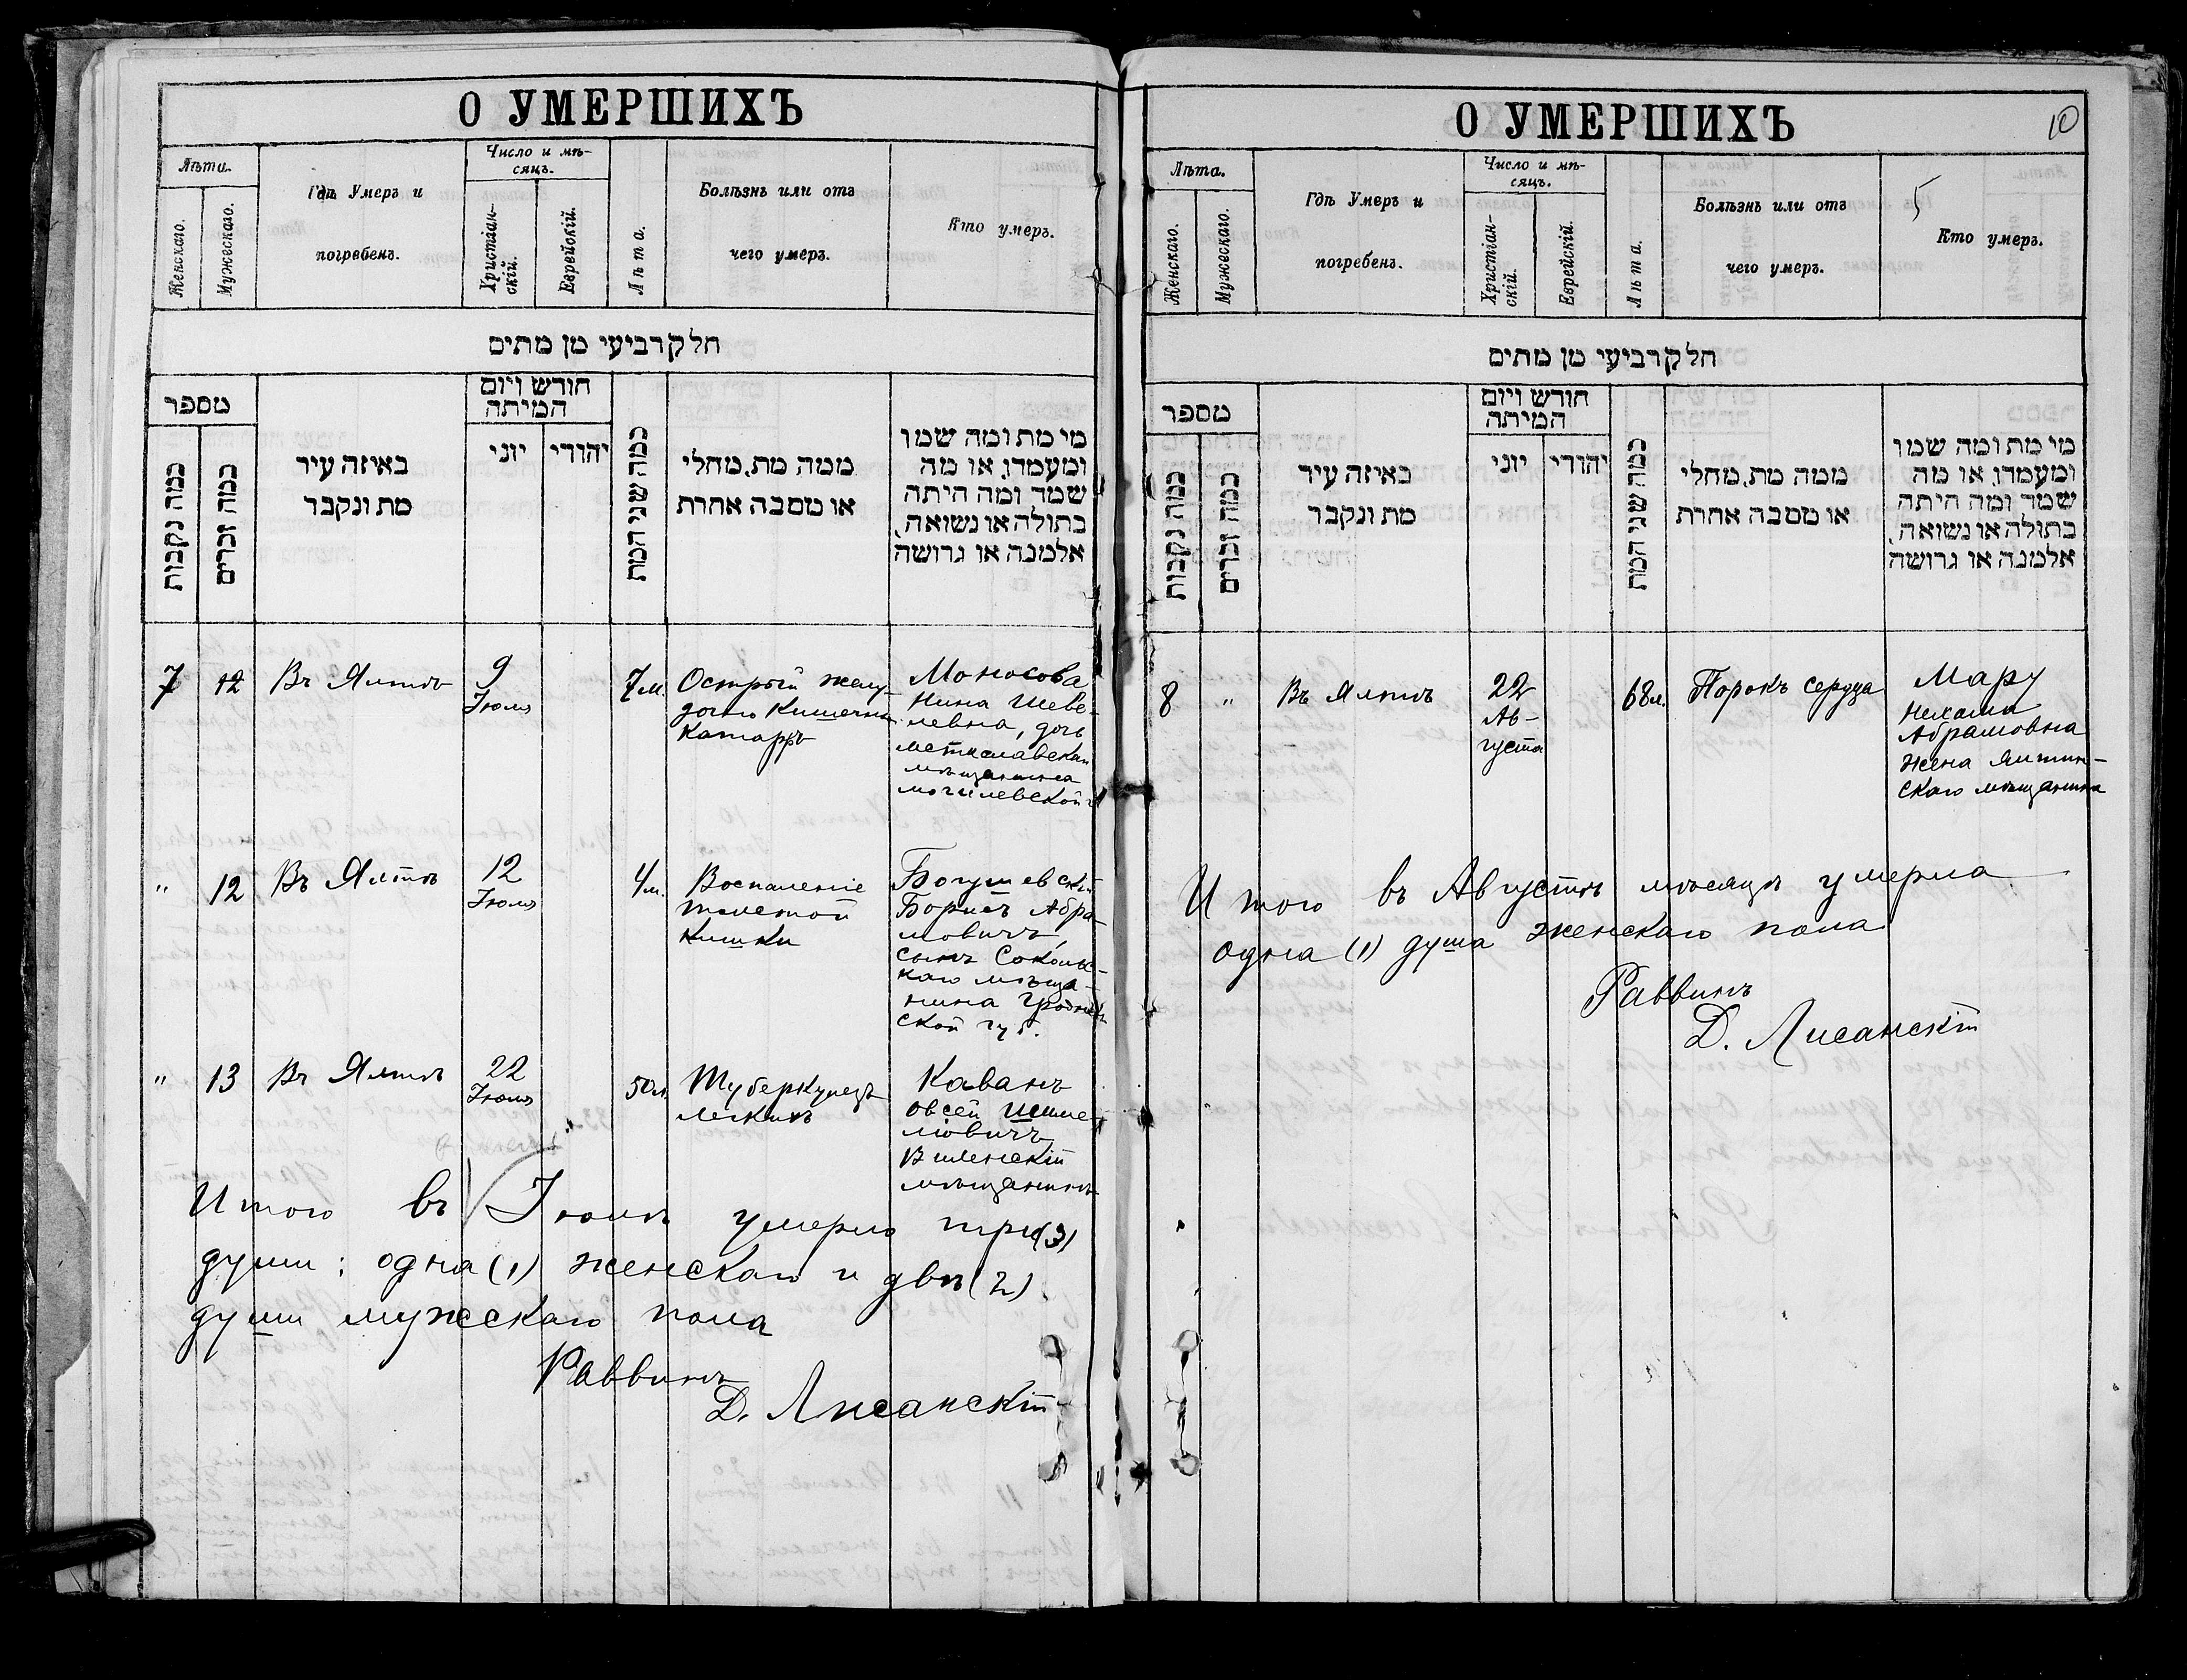 О УМЕРШИХЪ
Лѣта.
Женскаго.
Мужескаго.
Гдѣ Умеръ и
погребенъ.
Число и мѣ-
сяцъ.
Христіан-
скій.
Еврейскій.
Лѣта.
Болѣзнь или отъ
чего умеръ.
Кто умеръ.
חלק רביעי מן מתים
מספר
כמה נקבות
כמה זכרים
באיזה עיר
מת ונקבר
חודש ויום
המיתה
יוני
יהודי
כמה שני המת
ממה מת, מחלי
או מסבה אחרת
מי מת ומה שמו
ומעמדו, או מה
שמד ומה היתה
בתולה או נשואה,
אלמנה או גרושה
7 12 Въ Ялтѣ
9
Іюля
7 м.
Острый желу-
дочно кишечн.
катарръ
Моносова
Нина Шеве-
левна, дочь
мстиславскаго
мѣщанина
могилевской г
" 12 Въ Ялтѣ
12
Іюля
4 м.
Воспаленіе
толстой
кишки
Богушевскій
Борисъ Абра-
мовичъ,
сынъ Соколь-
каго мѣща-
нина Гроднен-
ской губ.
" 13 Въ Ялтѣ
22
Іюля
50 л.
Туберкулезъ
легкихъ
Каванъ
Овсей
Виленскій
мѣщанинъ
Итого въ Іюлѣ умерло три (3)
души: одна (1) женскаго и двѣ (2)
души мужескаго пола
Раввинъ
Д. Лисанскій
О УМЕРШИХЪ
10
Лѣта.
Женскаго.
Мужескаго.
Гдѣ Умеръ и
погребенъ.
Число и мѣ-
сяцъ.
Христіан-
скій.
Еврейскій.
Лѣта.
Болѣзнь или отъ
чего умеръ.
5
Кто умеръ.
חלק רביעי מן מתים
מספר
כמה נקבות
כמה זכרים
באיזה עיר
מת ונקבר
חודש ויום
המיתה
יוני
יהודי
כמה שני המת
ממה מת, מחלי
או מסבה אחרת
מי מת ומה שמו
ומעמדו, או מה
שמד ומה היתה
בתולה או נשואה,
אלמנה או גרושה
8 " Въ Ялтѣ
22
Ав-
густа
68 л.
Порокъ сердца
Мару
Нехама
Абрамовна
жена Ялтин-
скаго мѣщанина
Итого въ Августѣ мѣсяцѣ умерла
одна (1) душа женскаго пола
Раввинъ
Д. Лисанскій